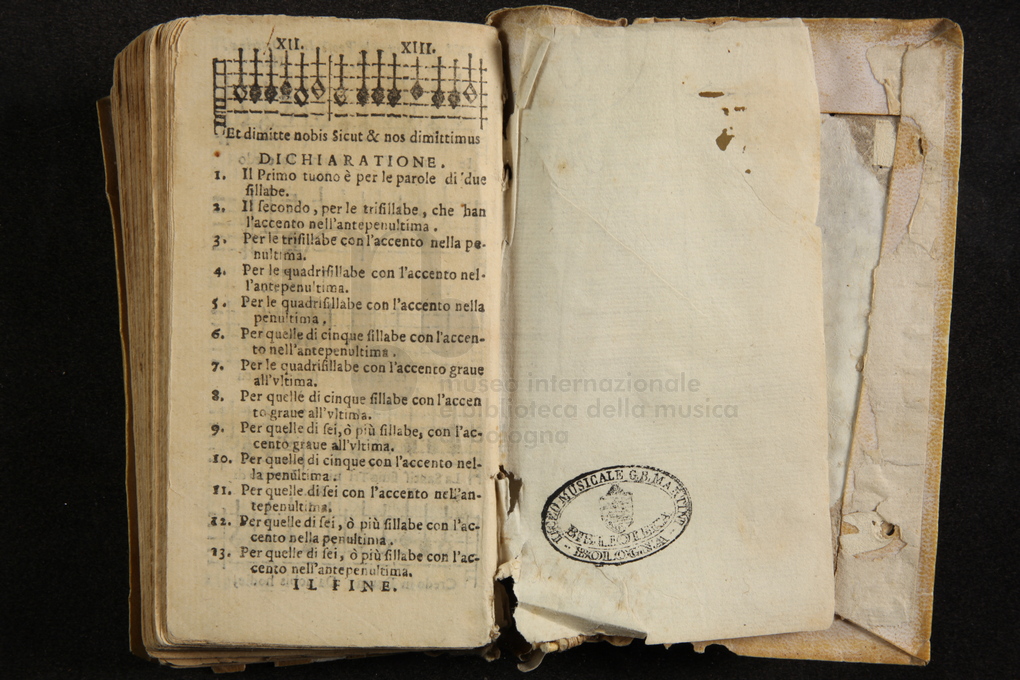 XII. XIII.
Et dimitte nobis Sicut & nos dimittimus
DICHIARATIONE.
1. Il Primo tuono è per le parole di due
sillabe.
2. Il secondo, per le trisillabe, che han
l'accento nell'antepenultima.
3. Per le trisillabe con l'accento nella pe-
nultima.
4. Per le quadrisillabe con l'accento nel-
l'antepenultima.
5. Per le quadrisillabe con l'accento nella
penultima.
6. Per quelle di cinque sillabe con l'accen-
to nell'antepenultima.
7. Per le quadrisillabe con l'accento graue
all'vltima.
8. Per quelle di cinque sillabe con l'accen
to graue all'vltima.
9. Per quelle di sei, ò più sillabe, con l'ac-
cento graue all'vltima.
10. Per quelle di cinque con l'accento nel-
la penultima.
11. Per quelle di sei con l'accento nell'an-
tepenultima.
12. Per quelle di sei, ò più sillabe con l'ac-
cento nella penultima.
13. Per quelle di sei, ò più sillabe con l'ac-
cento nell'antepenultima.
IL FINE.
museo internazionale
e biblioteca della musica
bologna
LICEO MUSICALE G. B. MARTINI
BIBLIOTECA
BOLOGNA